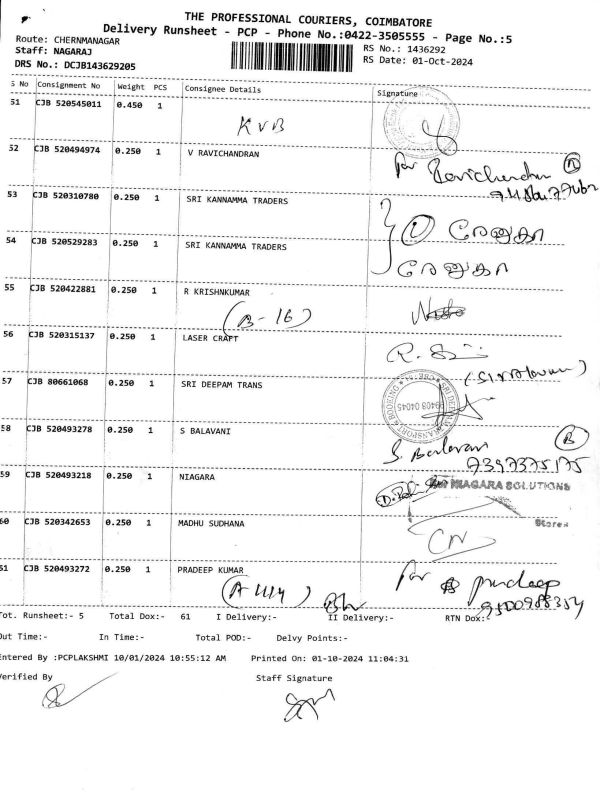 THE PROFESSIONAL COURIERS, COIMBATORE
Delivery Runsheet - PCP - Phone No.:0422-3505555 - Page No.:5
Route: CHERNMANAGAR RS No.: 1436292
Staff: NAGARAJ RS Date: 01-Oct-2024
DRS No.: DCJB143629205
S No Consignment No Weight PCS Consignee Details Signature
51 CJB 520545011 0.450 1
KVB
52 CJB 520494974 0.250 1 V RAVICHANDRAN
for Ravichandran
53 CJB 520310780 0.250 1 SRI KANNAMMA TRADERS
ரேணுகா
54 CJB 520529283 0.250 1 SRI KANNAMMA TRADERS
ரேணுகா
55 CJB 520422881 0.250 1 R KRISHNKUMAR
(B-16)
56 CJB 520315137 0.250 1 LASER CRAFT
57 CJB 80661068 0.250 1 SRI DEEPAM TRANS
58 CJB 520493278 0.250 1 S BALAVANI
S. Balavani B
7397375175
59 CJB 520493218 0.250 1 NIAGARA
NIAGARA SOLUTIONS
60 CJB 520342653 0.250 1 MADHU SUDHANA
Stores
61 CJB 520493272 0.250 1 PRADEEP KUMAR
for pradeep
Tot. Runsheet:- 5 Total Dox:- 61 I Delivery:- II Delivery:- RTN Dox:-
Out Time:- In Time:- Total POD:- Delvy Points:-
Entered By :PCPLAKSHMI 10/01/2024 10:55:12 AM Printed On: 01-10-2024 11:04:31
Verified By Staff Signature